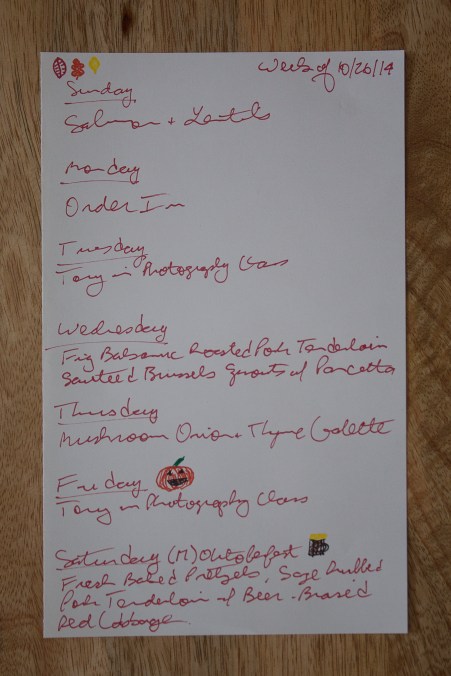 Week of 10/26/14
Sunday
Salmon + Lentils
Monday
Order In
Tuesday
Tony in Photography Class
Wednesday
Fig Balsamic Roasted Pork Tenderloin
Sauteed Brussels Sprouts w/ Pancetta
Thursday
Mushroom Onion + Thyme Galette
Friday
Tony in Photography Class
Saturday (M)Oktobefest
Fresh Baked Pretzels, Sage Rubbed
Pork Tenderloin w/ Beer-Braised
Red Cabbage